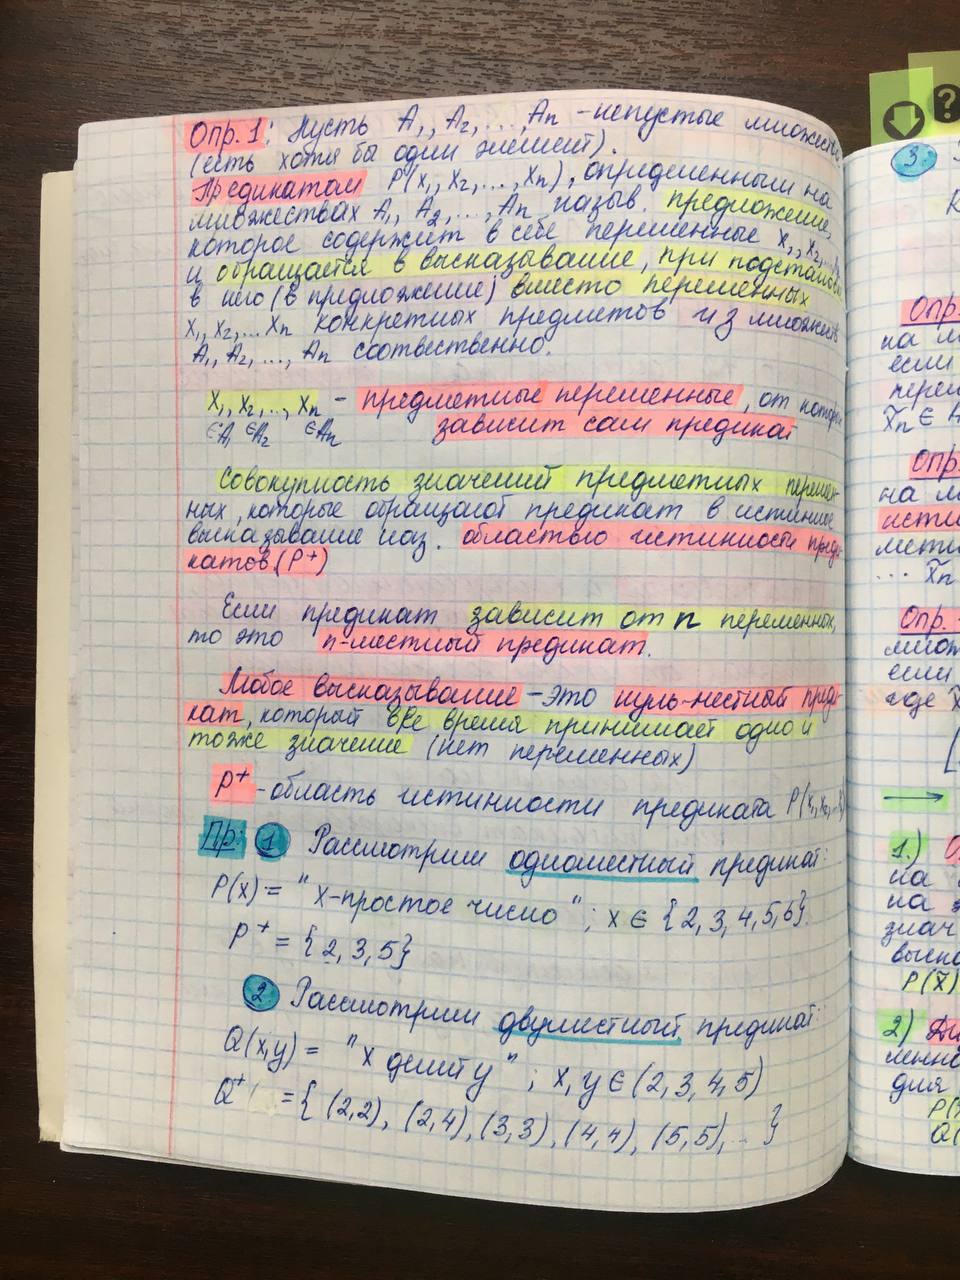 Опр. 1: Пусть A₁, A₂, ..., Aₙ - непустые множества
(есть хотя бы один элемент).
Предикатом P(x₁, x₂, ..., xₙ), определенным на
множествах A₁, A₂, ..., Aₙ назыв. предложение,
которое содержит в себе переменные x₁, x₂, ...
и обращается в высказывание, при подстановк
в него (в предложение) вместо переменных
x₁, x₂, ... xₙ конкретных предметов из множеств
A₁, A₂, ..., Aₙ соотвественно.
x₁, x₂, ..., xₙ - предметные переменные, от котор
∈A₁ ∈A₂ ∈Aₙ зависит сам предикат
Совокупность значений предметных перемен-
ных, которые обращают предикат в истинное
высказывание наз. областью истинности преди-
катов (P⁺)
Если предикат зависит от n переменных,
то это n-местный предикат.
Любое высказывание - это нуль-местный преди-
кат, который все время принимает одно и
тоже значение (нет переменных)
P⁺ - область истинности предиката P(x₁, x₂, ...
Пр: 1 Рассмотрим одноместный предикат:
P(x) = " x-простое число " ; x ∈ {2, 3, 4, 5, 6}.
P⁺ = {2, 3, 5}
2 Рассмотрим двуместный предикат:
Q(x,y) = " x делит y " ; x, y ∈ (2, 3, 4, 5)
Q⁺ = { (2,2), (2,4), (3,3), (4,4), (5,5), ... }
?
3.
Опр.
на м
если
перем
x̃ₙ ∈ A
Опр.
на м
исти
... x̃ₙ
Опр.
множ
если
где x̃
1.)
на
на
знач
выска
P(x̃)
2)
для
P(
Q(